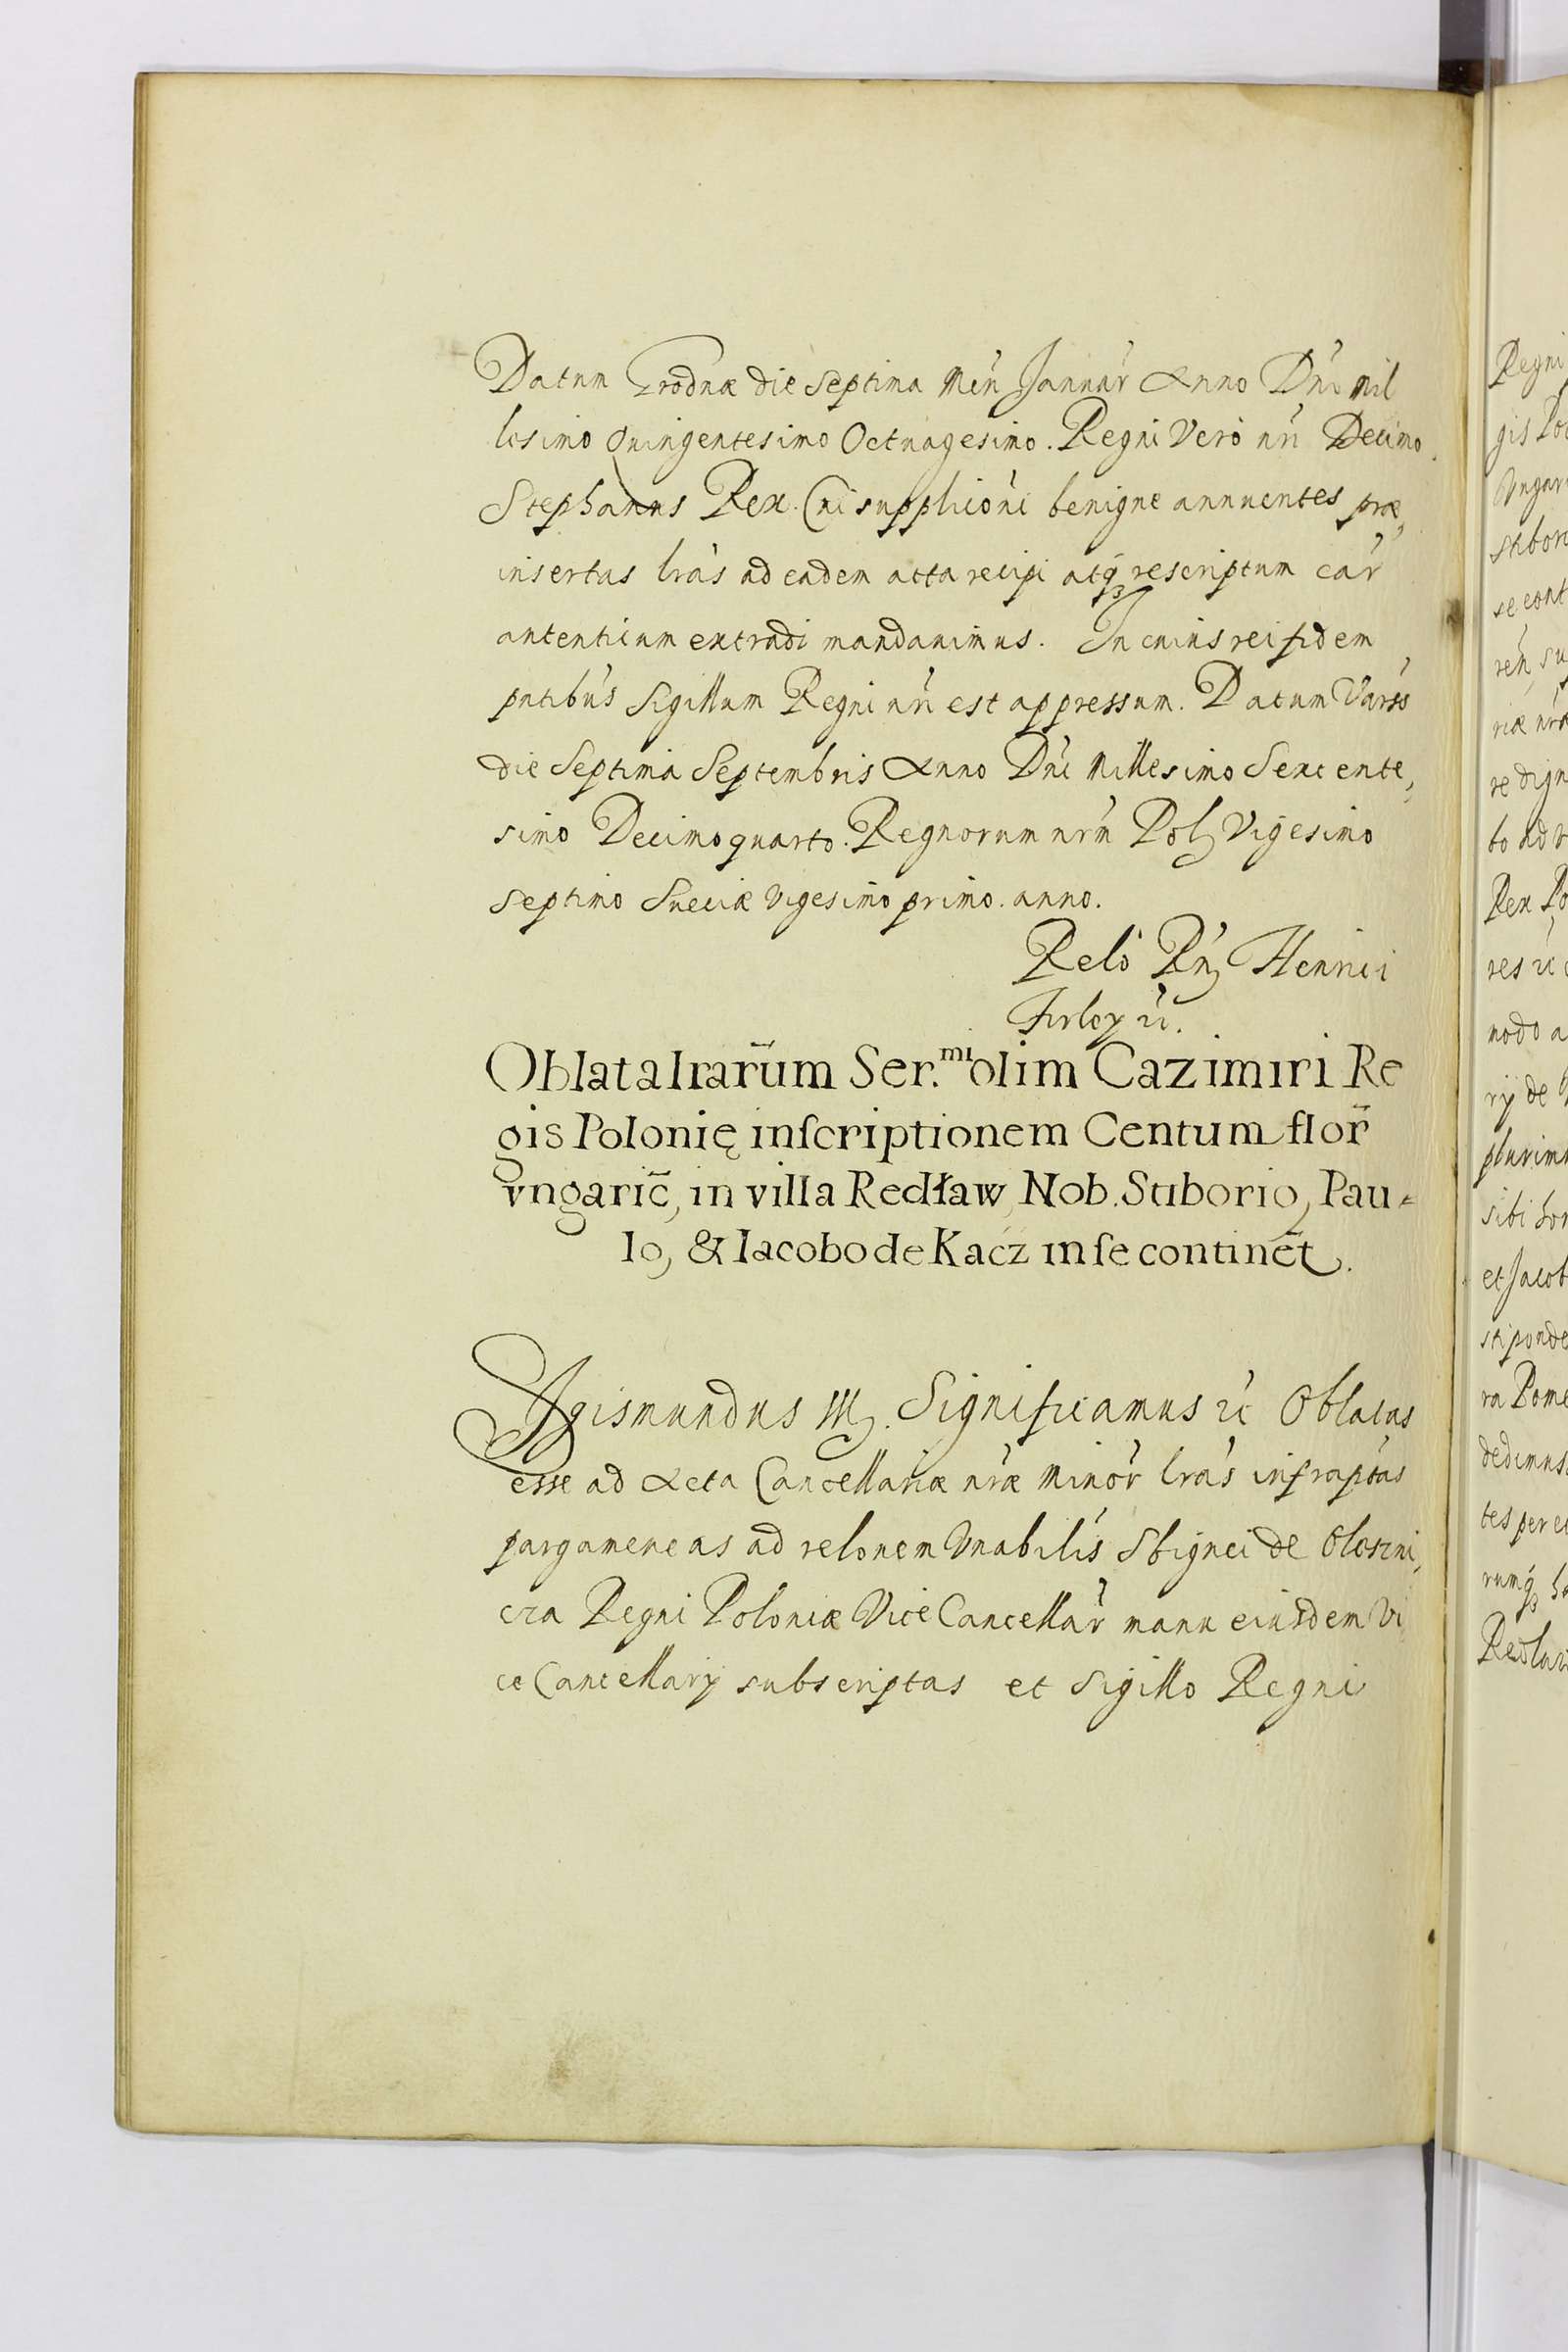 Datum Grodnæ die septima Mẽn Januar̃ Anno Dñi Mil
lesimo Quingentesimo Octuagesimo. Regni Vero nr̃i Decimo.
Stephanus Rex. Cui supplicioñi benigne annuentes præ,
insertas lrãs ad eadem acta recipi atq₃ rescriptum ear̃
autenticum extradi mandauimus. In cuius rei fidem
pñtibus Sigillum Regni nr̃i est appressum. Datum Varss
die Septima Septembris Anno Dñi Millesimo Sexcente,
simo Decimoquarto. Regnorum nrm̃ Pol, Vigesimo
septimo Sueciæ vigesimo primo. anno.
Relõ Rñ, Henrici
Firley ẽc.
Oblata lrarũm Ser.mi olim Cazimiri Re
gis Polonię inſcriptionem Centum flor̃
vngaric̃, in villa Redław, Nob. Stiborio, Pau-
lo, & Iacobo de Kacz in ſe continẽt.
Sigismundus III. Significamus ẽc Oblatas
esse ad Acta Cancellariæ nr̃æ Minor̃ lrãs infraptas
pargameneas ad relonem Vnabilis Sbignei de Olesni,
cza Regni Poloniæ Vice Cancellar̃ manu eiusdem Vi
ce Cancellarij subscriptas et Sigillo Regni
Regni
Vngar
stbor
se cont
riæ nræ
re dign
to ad v
Rex Po
res ẽc
modo a
rij de
plurim
sibi
et Jacob
stiponde
ra Pome
dedimus
tes per
rumq₃
Redlaw